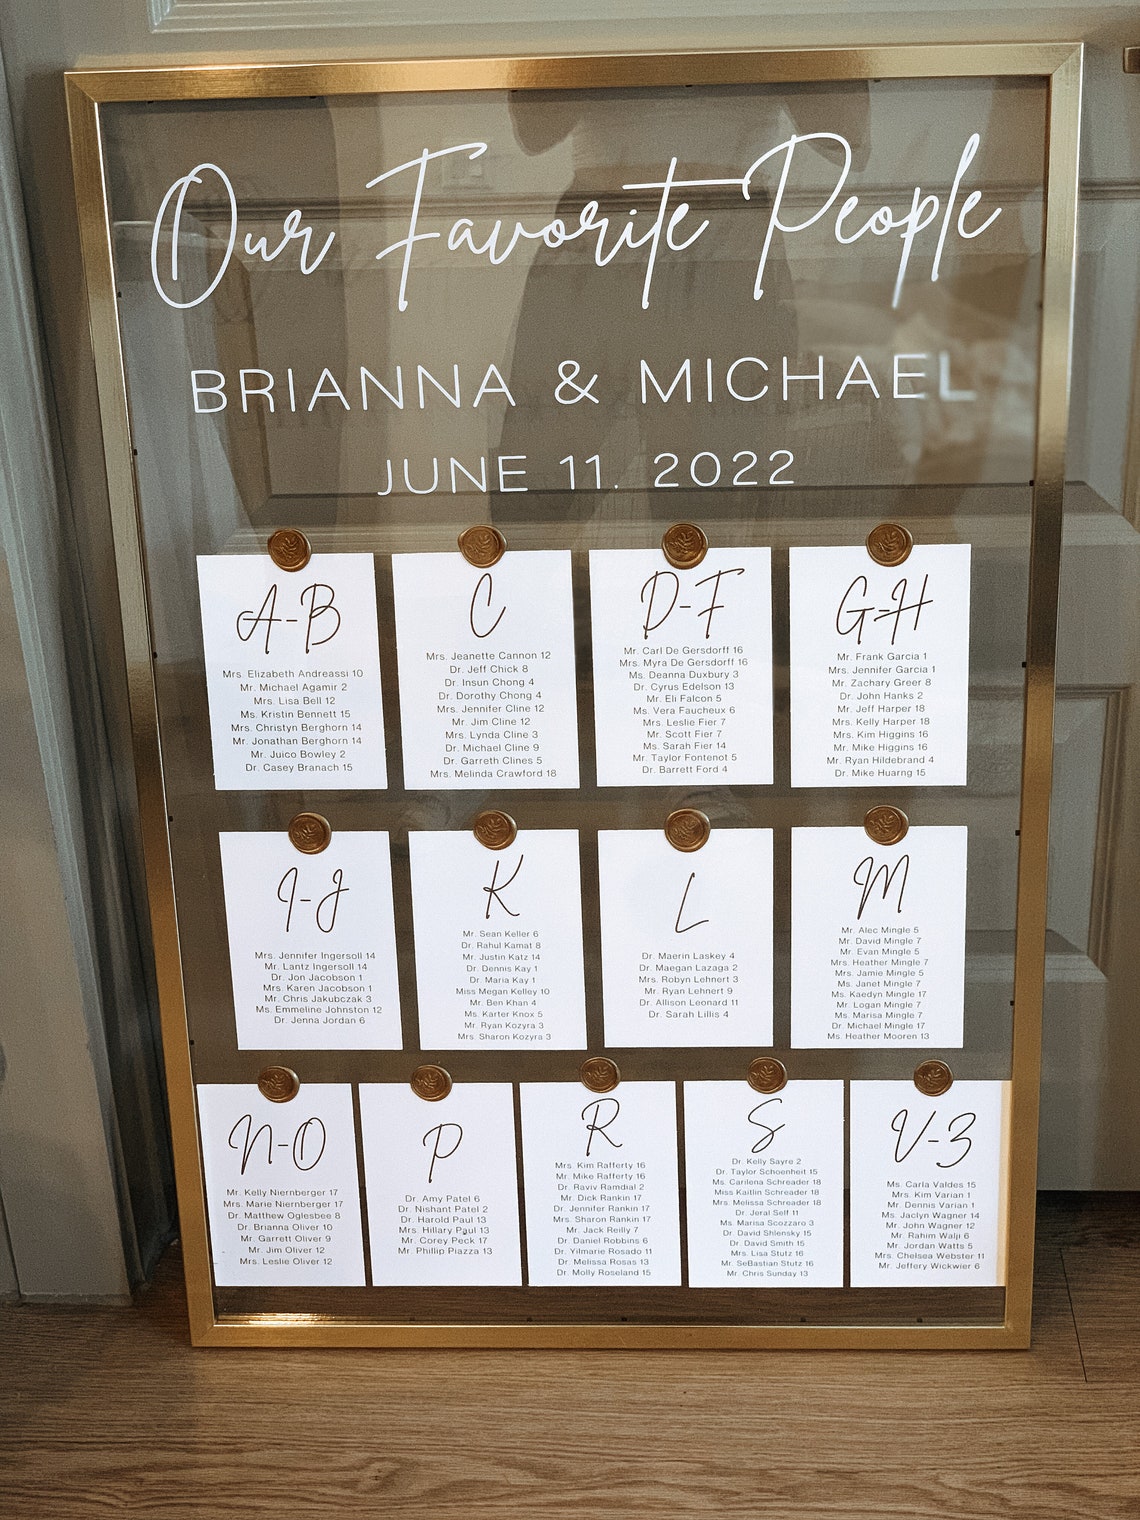 Our Favorite People
BRIANNA & MICHAEL
JUNE 11. 2022
A-B
Mrs. Elizabeth Andreassi 10
Mr. Michael Agamir 2
Mrs. Lisa Bell 12
Ms. Kristin Bennett 15
Mrs. Christyn Berghorn 14
Mr. Jonathan Berghorn 14
Mr. Juico Bowley 2
Dr. Casey Branach 15
C
Mrs. Jeanette Cannon 12
Dr. Jeff Chick 8
Dr. Insun Chong 4
Dr. Dorothy Chong 4
Mrs. Jennifer Cline 12
Mr. Jim Cline 12
Mrs. Lynda Cline 3
Dr. Michael Cline 9
Dr. Garreth Clines 5
Mrs. Melinda Crawford 18
D-F
Mr. Carl De Gersdorff 16
Mrs. Myra De Gersdorff 16
Ms. Deanna Duxbury 3
Dr. Cyrus Edelson 13
Mr. Eli Falcon 5
Ms. Vera Faucheux 6
Mrs. Leslie Fier 7
Mr. Scott Fier 7
Ms. Sarah Fier 14
Mr. Taylor Fontenot 5
Dr. Barrett Ford 4
G-H
Mr. Frank Garcia 1
Mrs. Jennifer Garcia 1
Mr. Zachary Greer 8
Dr. John Hanks 2
Mr. Jeff Harper 18
Mrs. Kelly Harper 18
Mrs. Kim Higgins 16
Mr. Mike Higgins 16
Mr. Ryan Hildebrand 4
Dr. Mike Huarng 15
I-J
Mrs. Jennifer Ingersoll 14
Mr. Lantz Ingersoll 14
Dr. Jon Jacobson 1
Mrs. Karen Jacobson 1
Mr. Chris Jakubczak 3
Ms. Emmeline Johnston 12
Dr. Jenna Jordan 6
K
Mr. Sean Keller 6
Dr. Rahul Kamat 8
Mr. Justin Katz 14
Dr. Dennis Kay 1
Dr. Maria Kay 1
Miss Megan Kelley 10
Mr. Ben Khan 4
Ms. Karter Knox 5
Mr. Ryan Kozyra 3
Mrs. Sharon Kozyra 3
L
Dr. Maerin Laskey 4
Dr. Maegan Lazaga 2
Mrs. Robyn Lehnert 3
Mr. Ryan Lehnert 9
Dr. Allison Leonard 11
Dr. Sarah Lillis 4
M
Mr. Alec Mingle 5
Mr. David Mingle 7
Mr. Evan Mingle 5
Mrs. Heather Mingle 7
Mrs. Jamie Mingle 5
Ms. Janet Mingle 7
Ms. Kaedyn Mingle 17
Mr. Logan Mingle 7
Ms. Marisa Mingle 7
Dr. Michael Mingle 17
Ms. Heather Mooren 13
N-O
Mr. Kelly Niernberger 17
Mrs. Marie Niernberger 17
Dr. Matthew Oglesbee 8
Dr. Brianna Oliver 10
Mr. Garrett Oliver 9
Mr. Jim Oliver 12
Mrs. Leslie Oliver 12
P
Dr. Amy Patel 6
Dr. Nishant Patel 2
Dr. Harold Paul 13
Mrs. Hillary Paul 13
Mr. Corey Peck 17
Mr. Phillip Piazza 13
R
Mrs. Kim Rafferty 16
Mr. Mike Rafferty 16
Dr. Raviv Ramdial 2
Mr. Dick Rankin 17
Dr. Jennifer Rankin 17
Mrs. Sharon Rankin 17
Mr. Jack Reilly 7
Dr. Daniel Robbins 6
Dr. Yilmarie Rosado 11
Dr. Melissa Rosas 13
Dr. Molly Roseland 15
S
Dr. Kelly Sayre 2
Dr. Taylor Schoenheit 15
Ms. Carilena Schreader 18
Miss Kaitlin Schreader 18
Mrs. Melissa Schreader 18
Dr. Jeral Self 11
Ms. Marisa Scozzaro 3
Dr. David Shlensky 15
Dr. David Smith 15
Mrs. Lisa Stutz 16
Mr. SeBastian Stutz 16
Mr. Chris Sunday 13
V-Z
Ms. Carla Valdes 15
Mrs. Kim Varian 1
Mr. Dennis Varian 1
Ms. Jaclyn Wagner 14
Mr. John Wagner 12
Mr. Rahim Walji 6
Mr. Jordan Watts 5
Mrs. Chelsea Webster 11
Mr. Jeffery Wickwier 6